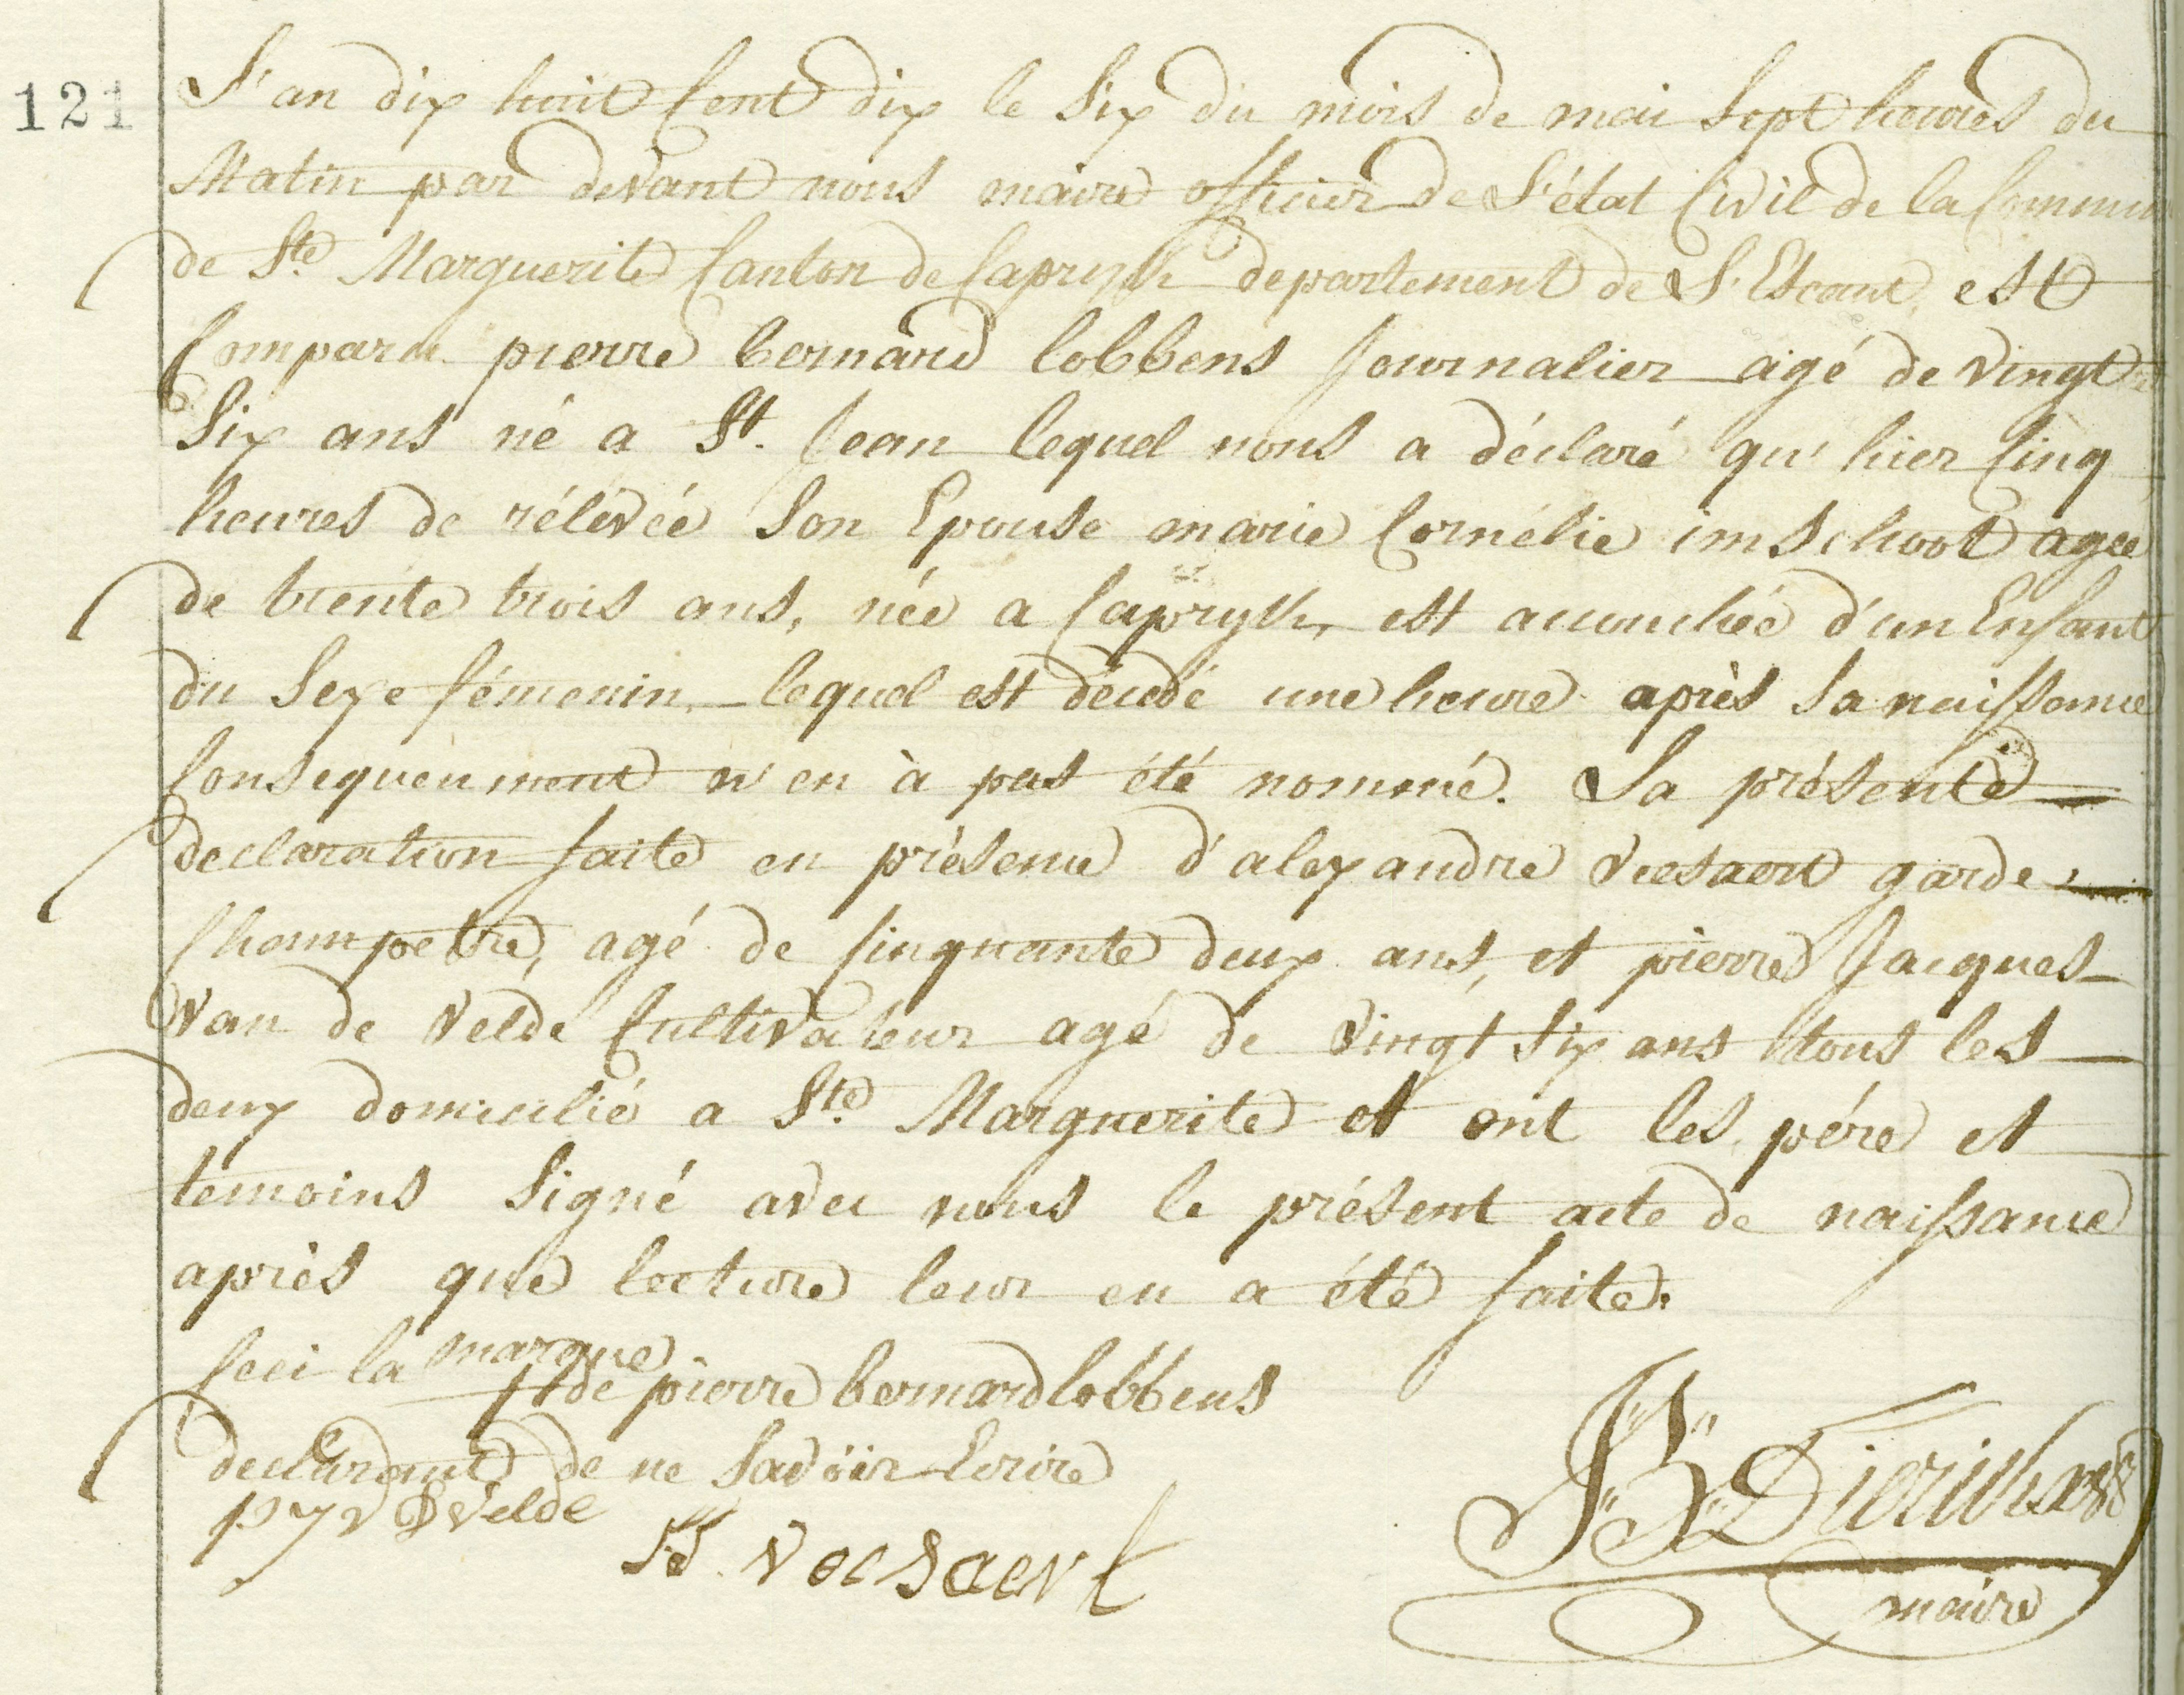 121
L'an dix huit Cent dix le Six du mois de mai Sept heures du
Matin par devant nous maire officier de L'état Civil de la Commun
de Ste. Marguerite Canton de Capryk departement de L'Escaut est
Comparu pierre bernard lobbens Journalier agé de vingt
Six ans né a St. Jean lequel nous a déclaré qu'hier Cinq
heures de rélévée Son Epouse marie Cornélie imschoot agée
de trente trois ans, née a Capryk, est accouchée d'un Enfant
du Sexe fémenin, lequel est décedé une heure après Sa naissance
Consequemment n'en à pas été nommé. La présente
declaration faite en présence d'alexandre Versaert garde
Champetre, agé de Cinquante deux ans, et pierre Jacques
Van de Velde Cultivateur agé de vingt Six ans tous les
deux domicilié a Ste. Marguerite et ont les pére et
temoins Signé avec nous le présent acte de naissance
après que lecture leur en a été faite.
Ceci la marque
de pierre bernard lobbens
declarant de ne Savoir Ecrire
PJ V D Velde
maire